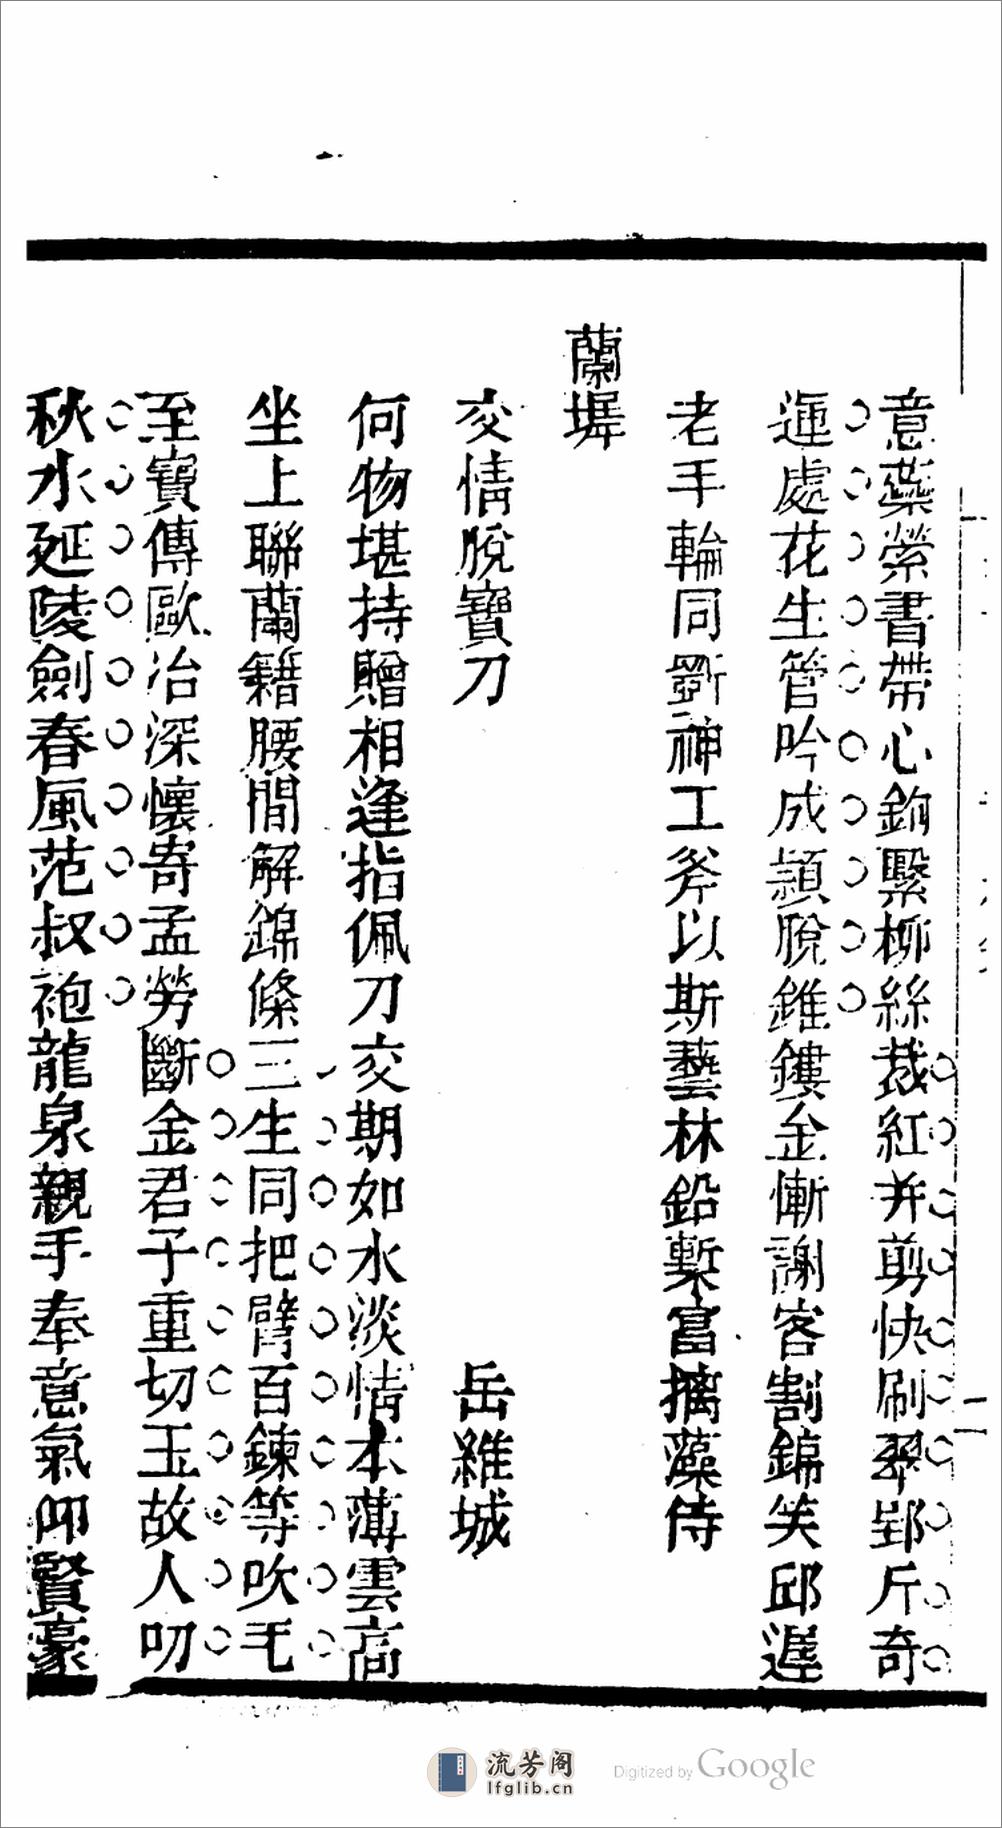 意蘂縈書帶心鉤繫柳絲裁紅并剪快刷翠郢斤奇
運處花生管吟成頴脫錐鏤金慚謝客割錦笑邱遲
老手輪同斵神工斧以斯藝林鉛槧富摛藻侍
蘭墀
交情脫寶刀 岳維城
何物堪持贈相逢指佩刀交期如水淡情本薄雲高
坐上聯蘭籍腰間解錦絛三生同把臂百鍊等吹毛
至寶傳歐冶深懷寄孟勞斷金君子重切玉故人叨
秋水延陵劍春風范叔袍龍泉親手奉意氣仰賢豪
流芳阁
lfglib.cn
Digitized by Google